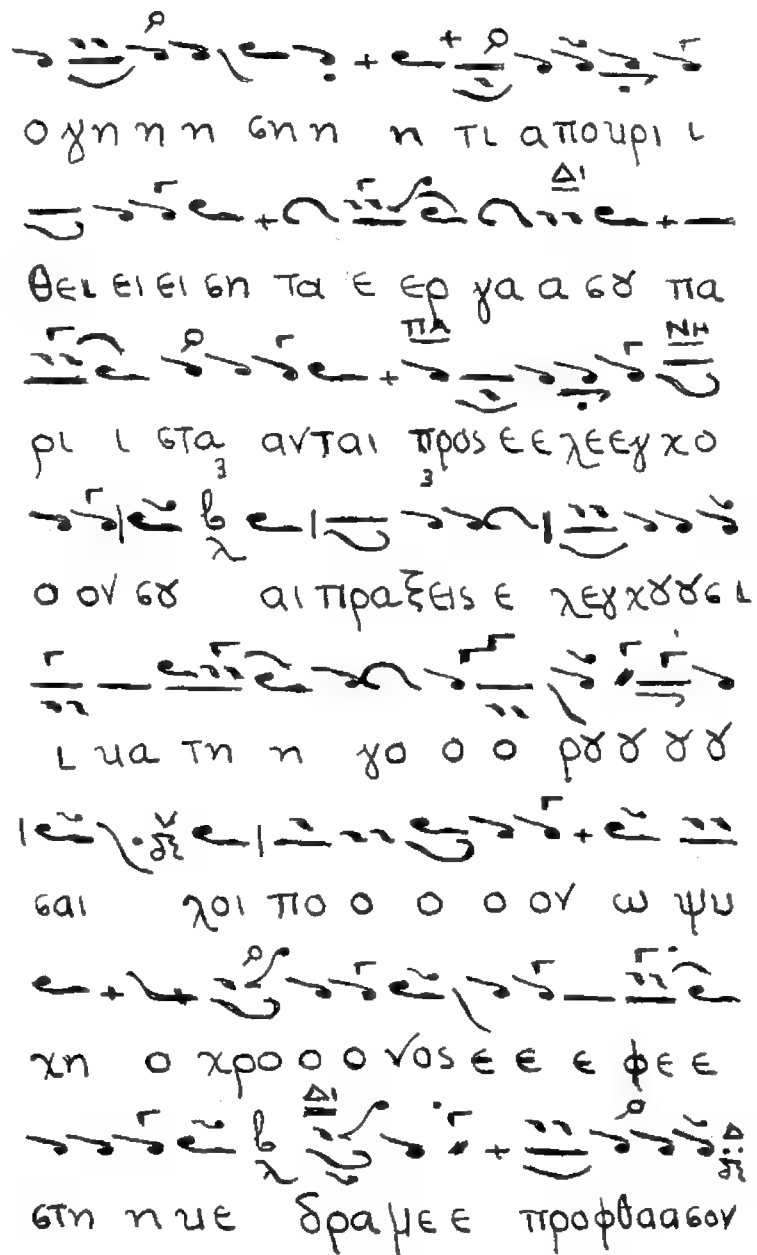 ο γη η η ση η η τι αποκρι ι
ΔΙ
θει ει ει ση τα ε ερ γα α σȣ πα
ΠΑ ΝΗ
ρι ι στα ανται προς ε ε λεεγχο
ο ον σȣ αι πραξεις ε λεγχȣȣσι
ι κα τη η γο ο ο ρȣ ȣ ȣ ȣ
σαι λοι πο ο ο ο ον ω ψυ
χη ο χρο ο ο νος ε ε ε φε ε
ΔΙ
στη η κε δραμε ε προφθαασον